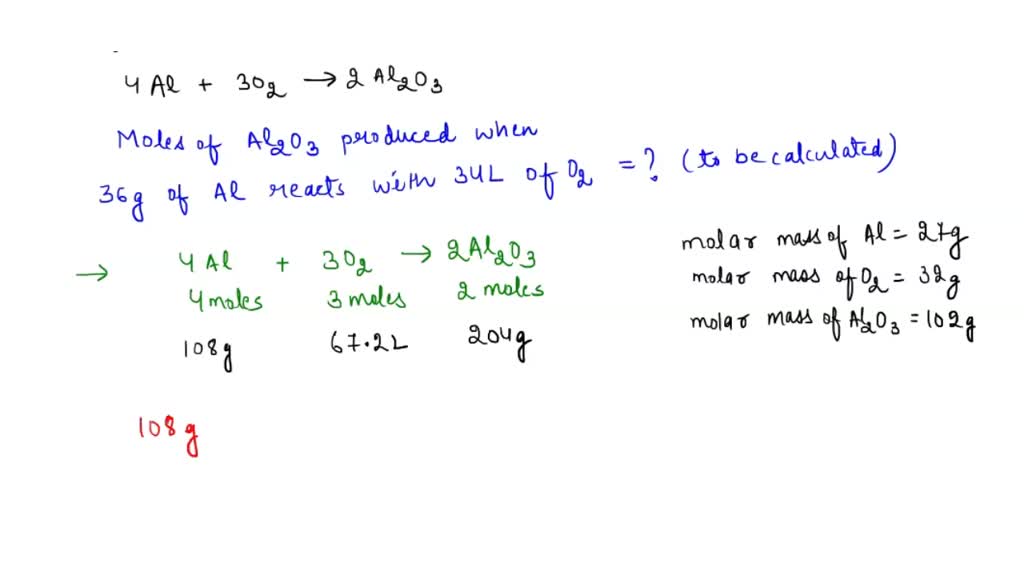 4Al + 3O₂ → 2Al₂O₃
Moles of Al₂O₃ produced when
36g of Al reacts with 34L of O₂ = ? (to be calculated)
→ 4Al + 3O₂ → 2Al₂O₃
4moles 3moles 2 moles
108g 67.2L 204g
molar mass of Al = 27g
molar mass of O₂ = 32g
molar mass of Al₂O₃ = 102g
108g